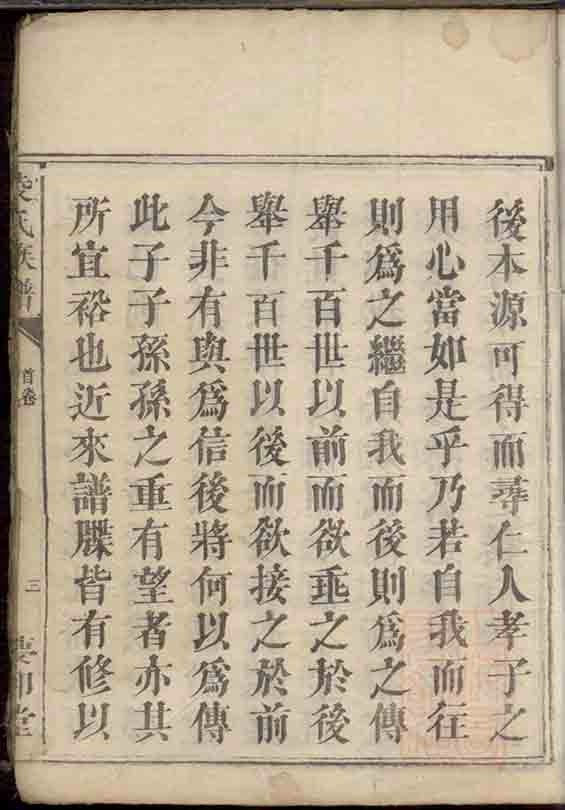 後本源可得而尋仁人孝子之
用心當如是乎乃若自我而往
則爲之繼自我而後則爲之傳
舉千百世以前而欲垂之於後
舉千百世以後而欲接之於前
今非有與爲信後將何以爲傳
此子子孫孫之重有望者亦其
所宜裕也近來譜牒皆有修以
氏族譜
首卷
三
堂